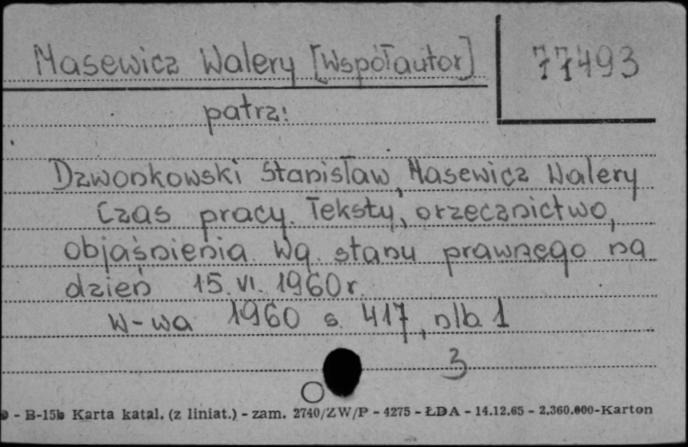 Masewicz Walery [Współautor]
77493
patrz:
Dzwonkowski Stanisław, Masewicz Walery
Czas pracy. Teksty, orzecznictwo,
objaśnienia. Wg. stanu prawnego na
dzień 15.VI.1960r.
W-wa 1960 s. 417, nlb. 1
3
- B-15b Karta katal. (z liniat.) - zam. 2740/ZW/P - 4275 - ŁDA - 14.12.65 - 2.360.000-Karton